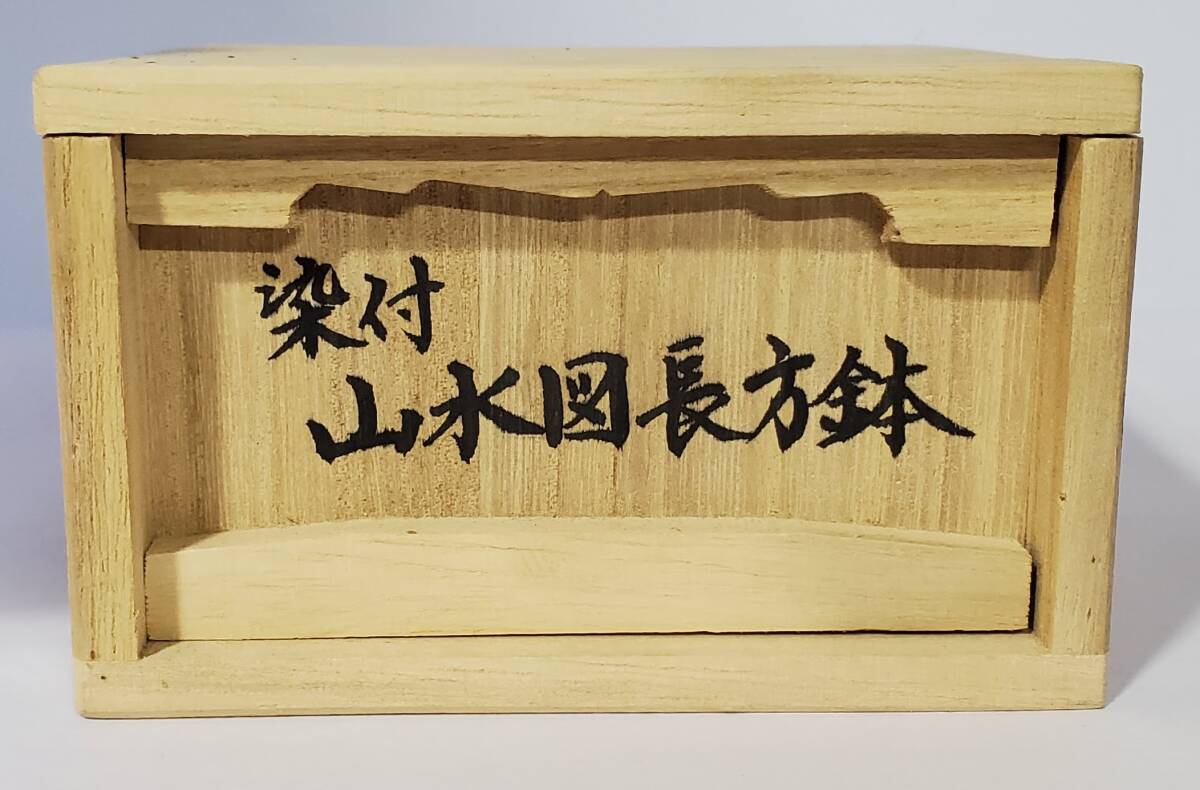 染付
山水図長方鉢